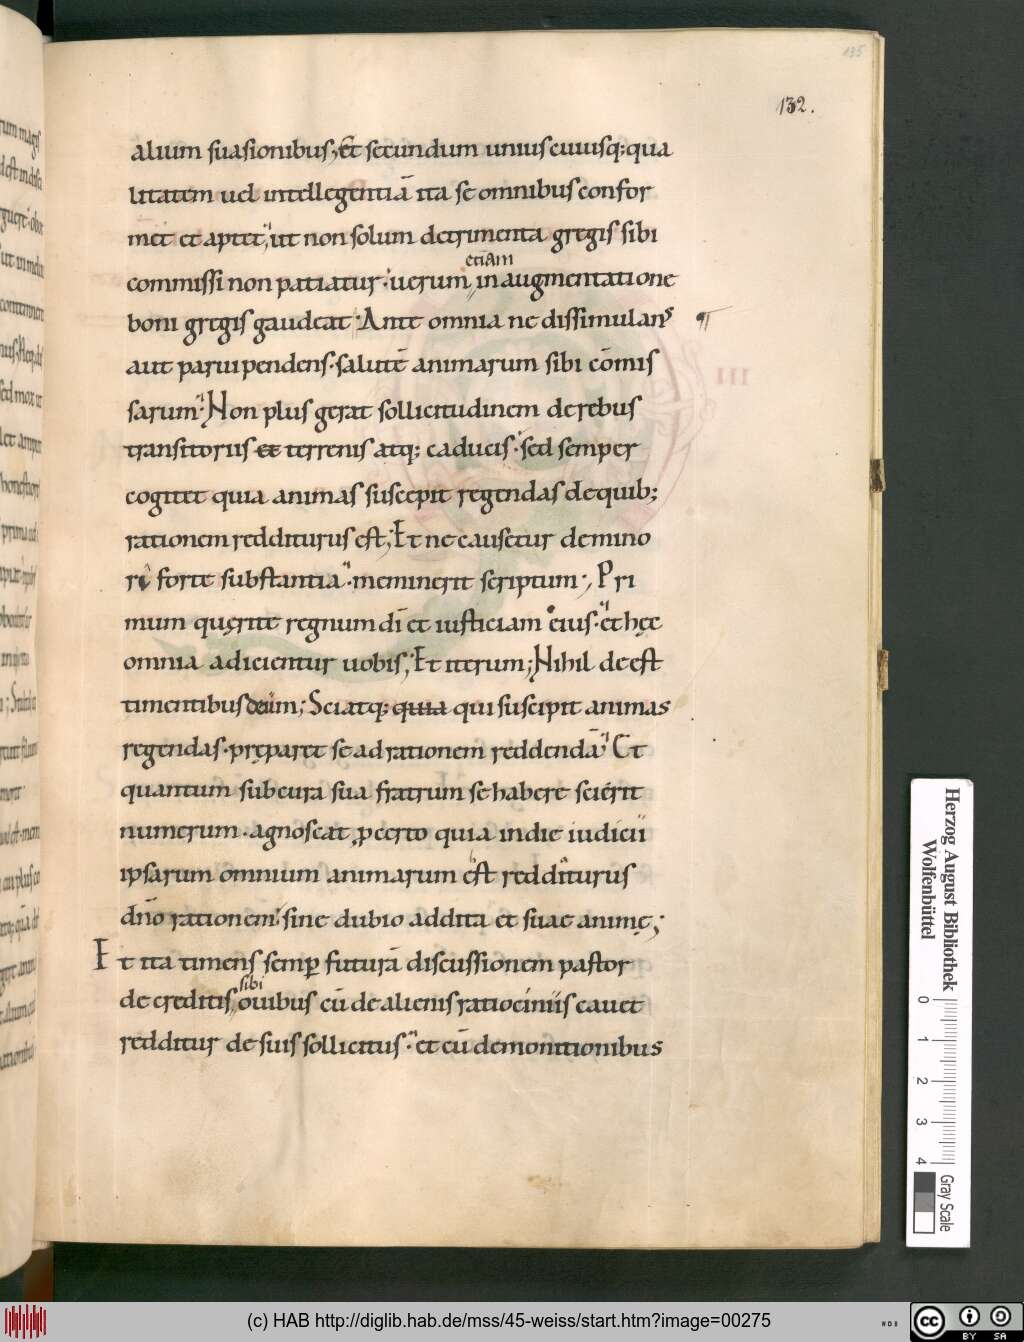 135
132.
alium suasionibus; Et secundum unius cuiusq; qua
litatem uel intellegentiā ita se omnibus confor
met et aptet, ut non solum detrimenta gregis sibi
etiam
commissi non patiatur· uerum in augmentatione
boni gregis gaudeat· Ante omnia ne dissimulans
aut paruipendens· salutē animarum sibi cōmis
sarum· Non plus gerat sollicitudinem de rebus
transitoriis et terrenis atq; caducis· sed semper
cogitet quia animas suscepit regendas de quib;
rationem redditurus est; Et ne causetur de mino
ri forte substantia· meminerit scriptum; Pri
mum quęrite regnum dī et iusticiam eius· et hęc
omnia adicientur uobis; Et iterum; Nihil deest
timentibus deum; Sciatq; quia qui suscipit animas
regendas· pręparet se ad rationem reddendā· Et
quantum sub cura sua fratrum se habere scierit
numerum· agnoscat ꝓ certo quia in die iudicii
ipsarum omnium animarum est redditurus
dn̄o rationem· sine dubio addita et suae animę;
Et ita timens semꝑ futurā discussionem pastor
sibi
de creditis ouibus cū de alienis ratiociniis cauet
redditur de suis sollicitus· et cū de monitionibus
Herzog August Bibliothek
Wolfenbüttel
0 1 2 3 4
Gray Scale
(c) HAB http://diglib.hab.de/mss/45-weiss/start.htm?image=00275
cc BY SA